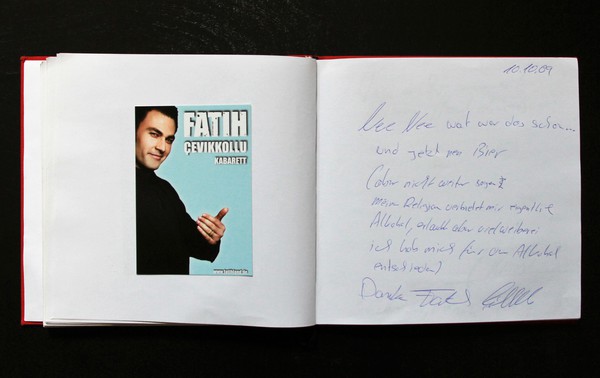 FATIH
ÇEVIKKOLLU
KABARETT
10.10.09
Nee Nee wat war das schön...
und jetzt Bier
(aber nicht weiter sagen
meine Religion verbietet mir
Alkohol, erlaubt aber vielweiberei
ich hab mich für den Alkohol
entschieden)
Danke Fatih